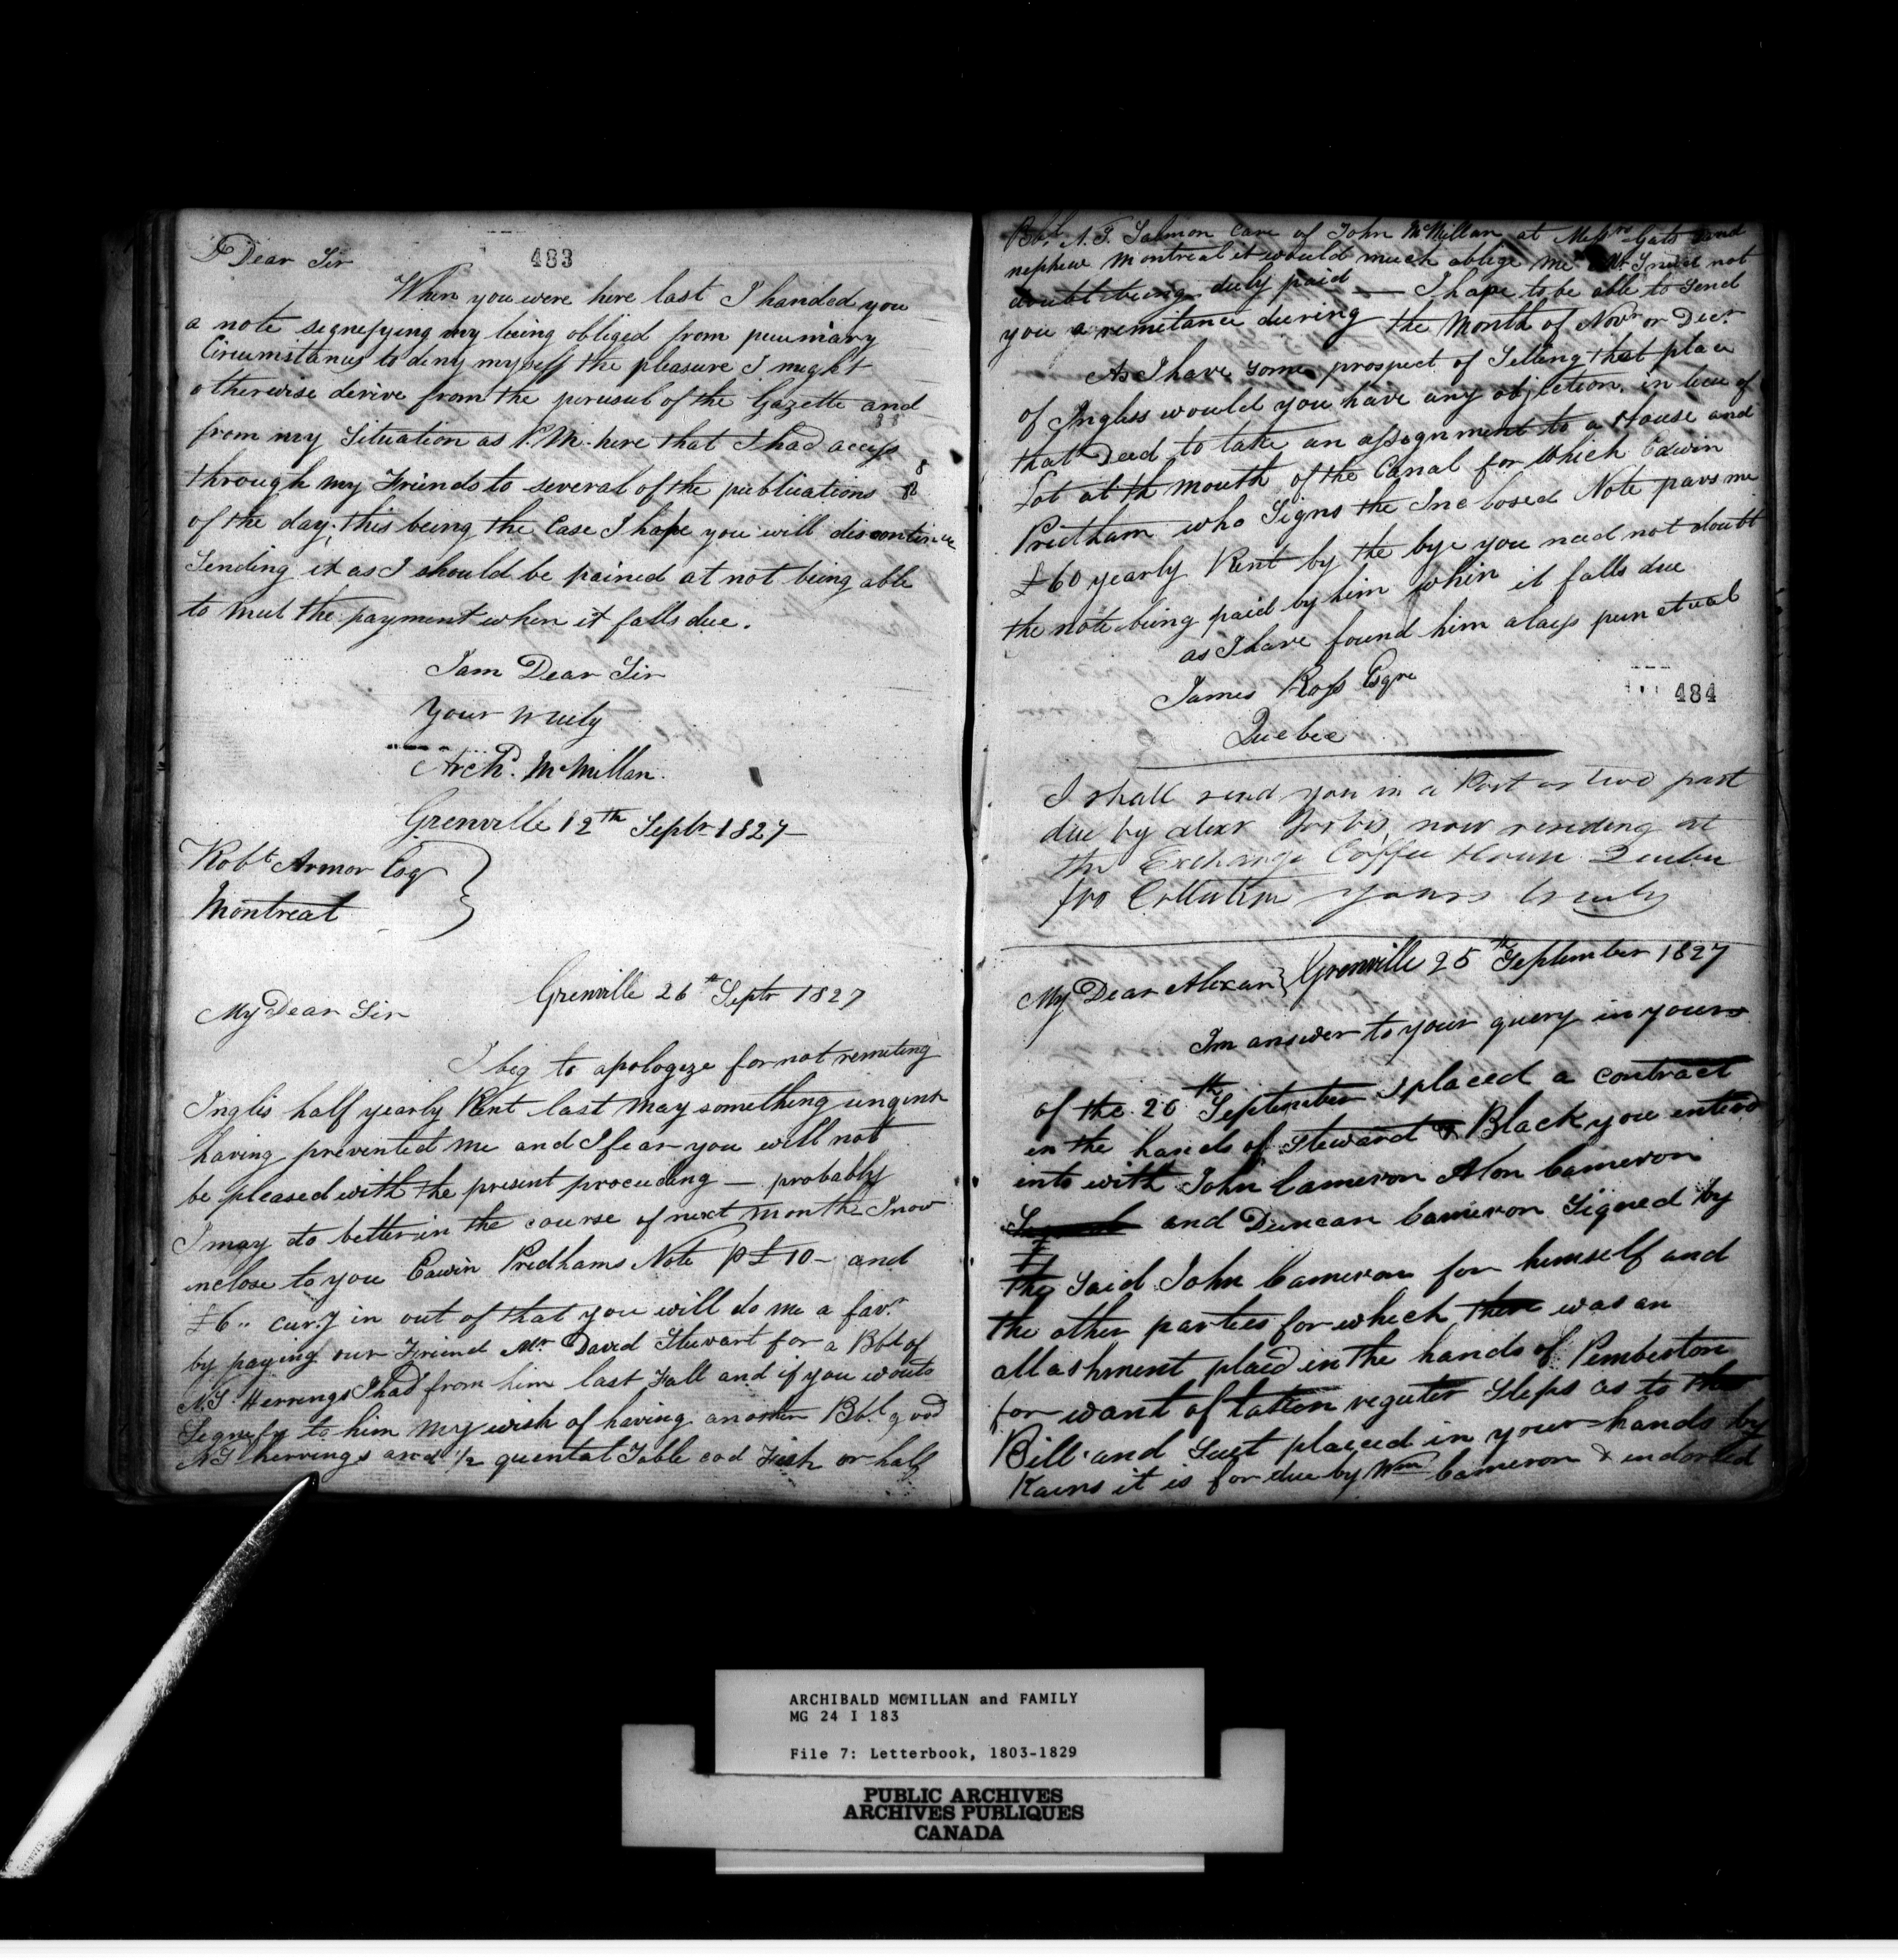 483
Dear Sir
When you were here last I handed you
a note signefying my being obliged from pecuniary
Circumstances to deny myself the pleasure I might
otherwise derive from the perusul of the Gazette and
from my Situation as P.M. here that I had access
through my Friends to several of the publications
of the day; this being the Case I hope you will discontinue
Sending it as I should be pained at not being able
to meet the payment when it falls due.
I am Dear Sir
Your truely
Archd. McMillan.
Grenville 12th Septr 1827
Robt Armor Esq
Montreal
Grenville 26th Septr 1827
My Dear Sir
I beg to apologize for not remiting
Inglis half yearly Rent last May something urgent
having prevented me and I fear you will not
be pleased with the present proceeding — probably
I may do better in the course of next month I now
inclose to you Edwin Pridhams Note p £10 - and
£6 .. cur.y in out of that you will do me a favr.
by paying our Friend Mr David Stewart for a Bbl of
N.F. Herrings I had from him last Fall and if you would
Signefy to him my wish of having another Bbl. good
N.F herrings and 1/2 quental Table cod Fish or half
Bbl. N.F. Salmon care of John McMillan at Messrs Gats and
nephew Montreal it would much oblige me I need not
doubt being duly paid — I hope to be able to send
you a remitance during the Month of Novr or Decr
As I have some prospect of Selling that place
of Ingliss would you have any objection, in lieu of
that Deed to take an assignment to a House and
Lot at th mouth of the Canal for which Edwin
Pridham who Signs the Inclosed Note pays me
£60 yearly Rent by the bye you need not doubt
the note being paid by him when it falls due
as I have found him alays punctual
James Ross Esqre
484
Quebec
I shall send you in a Post or two part
due by Alexr now residing at
the Exchange Coffee House Quebec
for Collection yours truly
Grenville 25th September 1827
My Dear Alexan}
Im answer to your query in yours
of the 20th September I placed a contract
in the hands of Steward & Black you entered
into with John Cameron Alon Cameron
and Duncan Cameron Signed by
the Said John Cameron for himself and
the other parties for which there was an
attashment placed in the hands of Pemberton
for want of tatten reguler Steps as to the
Bill and Suet placed in your hands by
Kains it is for due by Wm Cameron & endorsed
ARCHIBALD MCMILLAN and FAMILY
MG 24 I 183
File 7: Letterbook, 1803-1829
PUBLIC ARCHIVES
ARCHIVES PUBLIQUES
CANADA